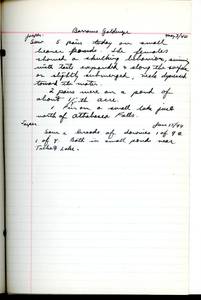 Barrows Goldeneye
Jasper May 7/44
Saw 5 pair today on small
beaver ponds. The females
showed a skulking behaviour, swimming
with tails expanded & along the surface
or slightly submerged, neck
toward the water.
2 pairs were on a pond of
about 1/4 th acre.
1 Pair on a small lake just
north of Athabasca Falls.
Jasper June 17/44
Saw 2 broods of downies 1 of 9 &
1 of 8. Both in small ponds near
Talbot Lake.